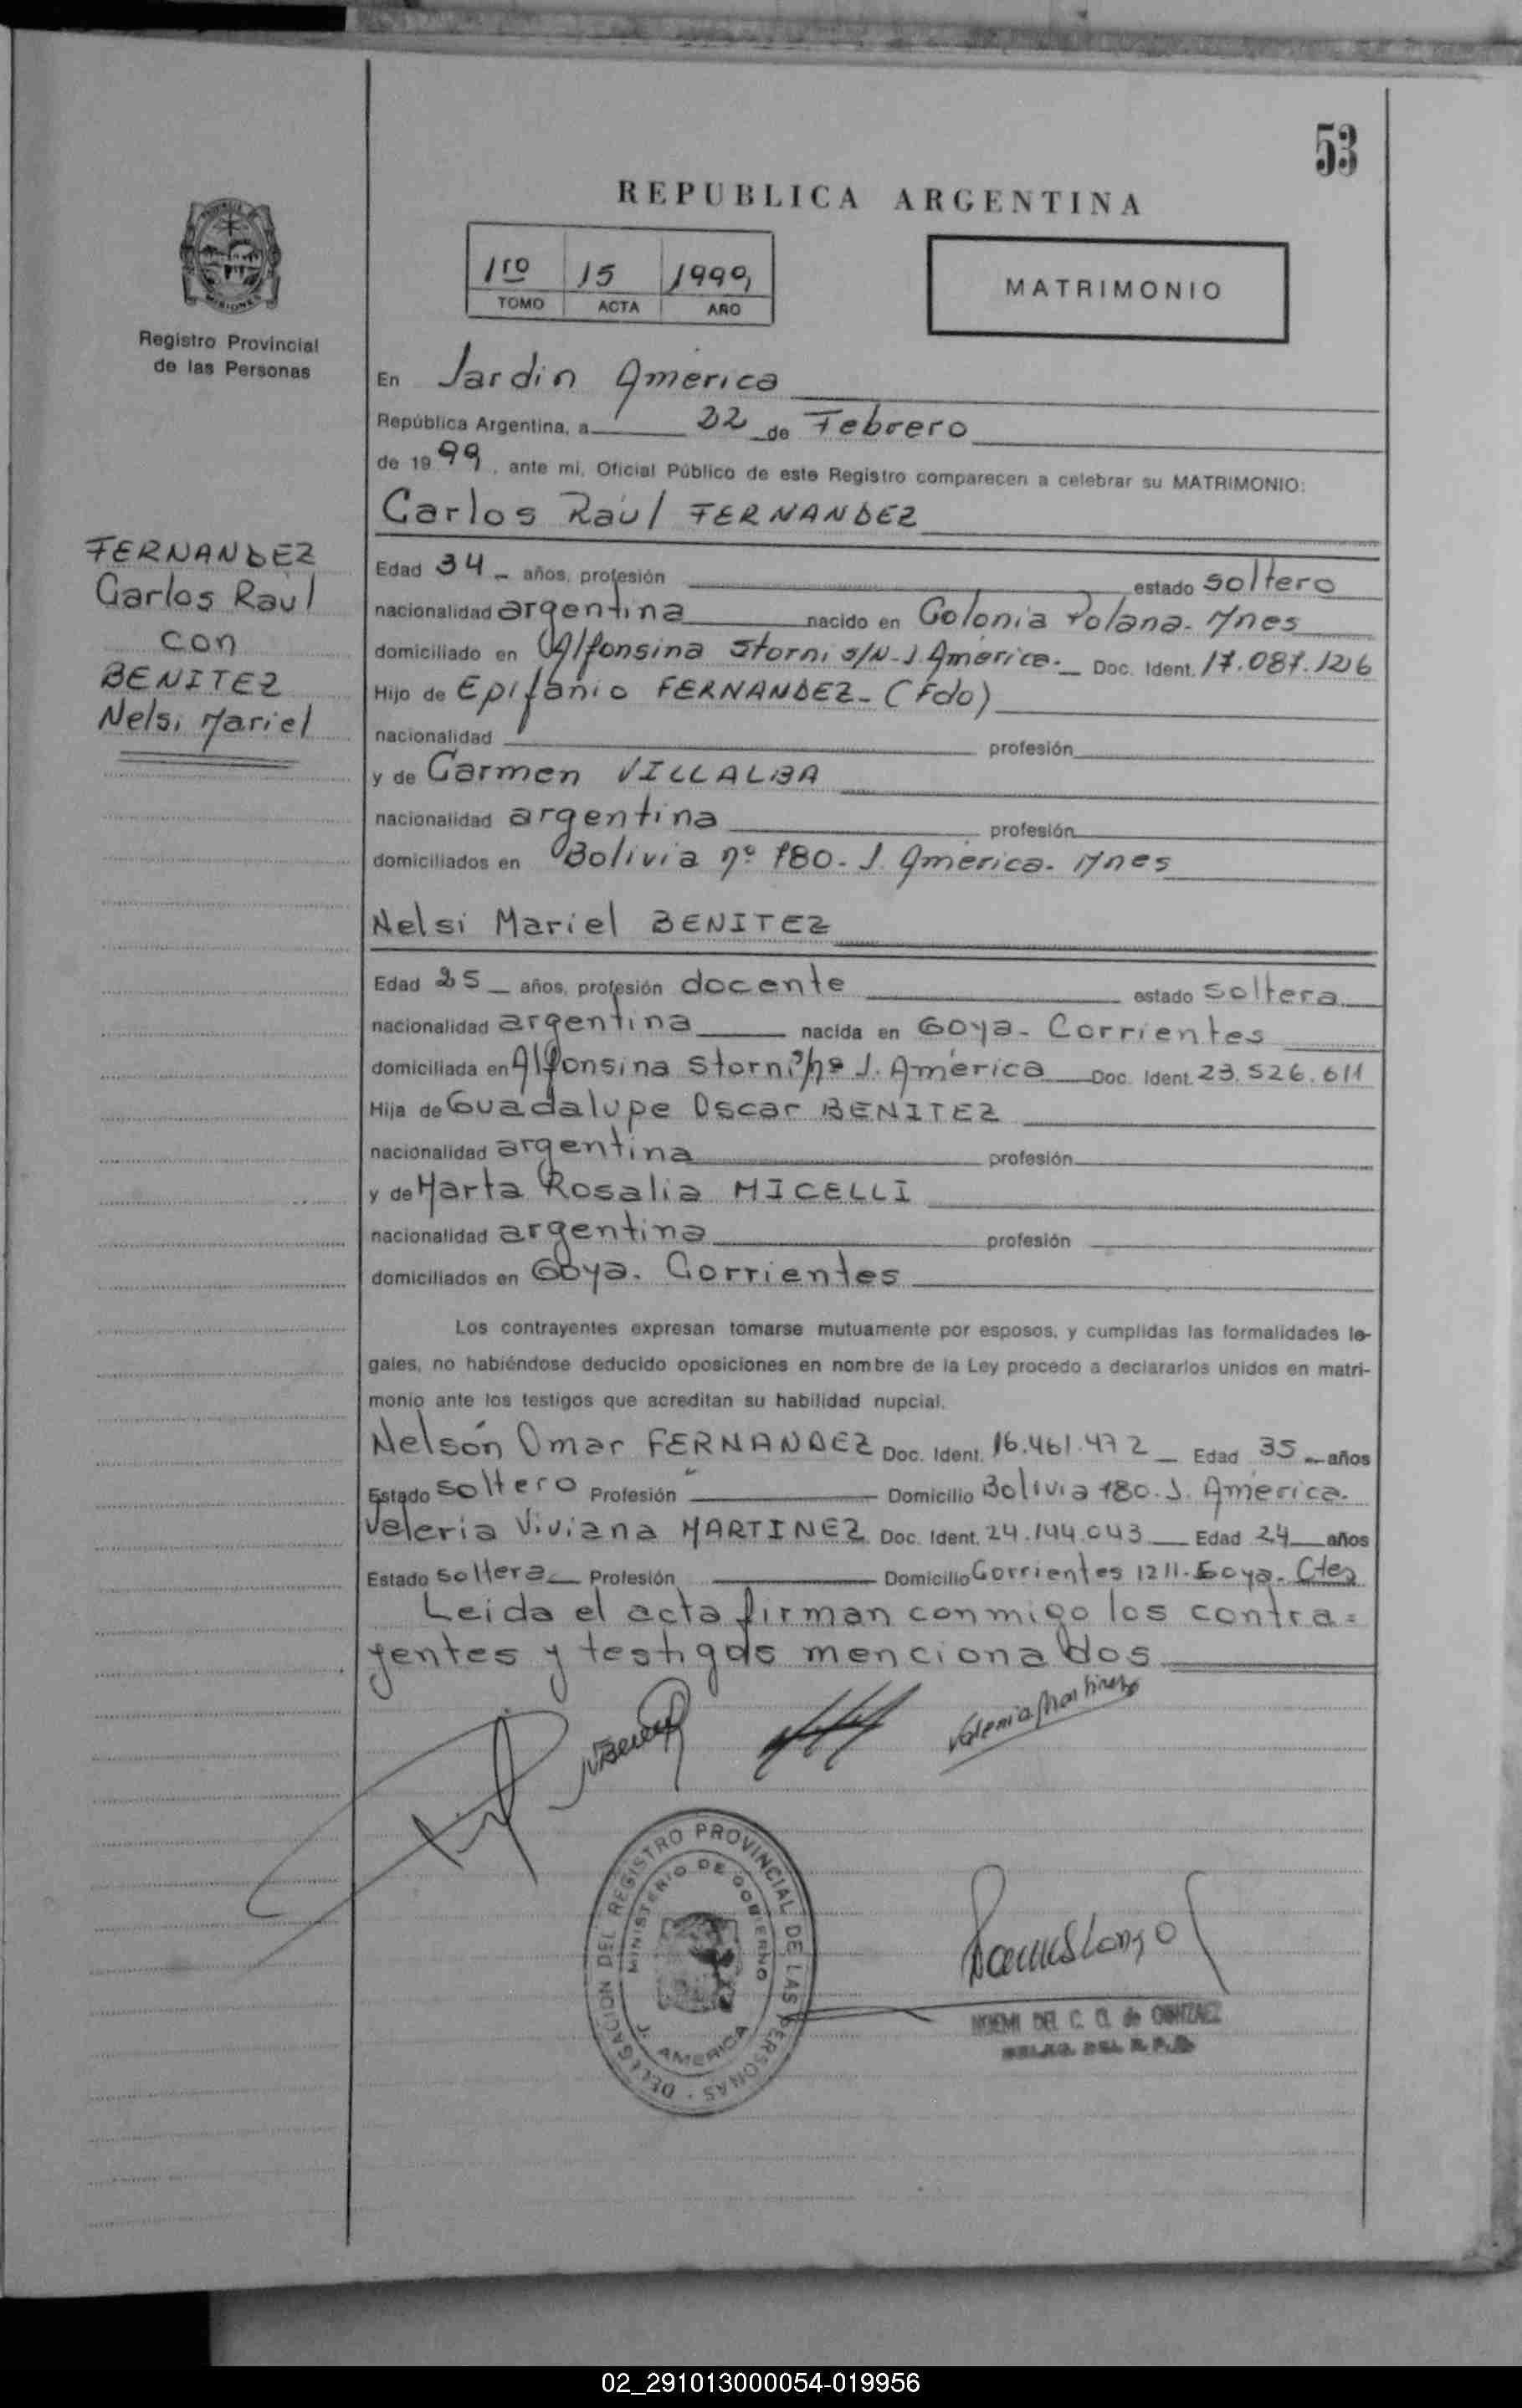 53
REPUBLICA ARGENTINA
1ro 15 1999
TOMO ACTA AÑO
MATRIMONIO
Registro Provincial
de las Personas
En Jardin América
República Argentina, a 22 de Febrero
de 1999, ante mi, Oficial Público de este Registro comparecen a celebrar su MATRIMONIO:
Carlos Raúl FERNANDEZ
FERNANDEZ
Carlos Raúl
con
BENITEZ
Nelsi Mariel
Edad 34 años, profesión estado soltero
nacionalidad argentina nacido en Colonia Polana - Mnes
domiciliado en Alfonsina Storni s/N - J. América - Doc. Ident. 17.087.126
Hijo de Epifanio FERNANDEZ - (Fdo)
nacionalidad profesión
y de Carmen VILLALBA
nacionalidad argentina profesión
domiciliados en Bolivia nº 180 - J. América - Mnes
Nelsi Mariel BENITEZ
Edad 25 años, profesión docente estado soltera
nacionalidad argentina nacida en Goya - Corrientes
domiciliada en Alfonsina Storni J. América Doc. Ident. 23.526.611
Hija de Guadalupe Oscar BENITEZ
nacionalidad argentina profesión
y de Marta Rosalia MICELLI
nacionalidad argentina profesión
domiciliados en Goya - Corrientes
Los contrayentes expresan tomarse mutuamente por esposos, y cumplidas las formalidades le-
gales, no habiéndose deducido oposiciones en nombre de la Ley procedo a declararlos unidos en matri-
monio ante los testigos que acreditan su habilidad nupcial.
Nelsón Omar FERNANDEZ Doc. Ident. 16.461.472 Edad 35 años
Estado soltero Profesión Domicilio Bolivia 180 - J. América -
Valeria Viviana MARTINEZ Doc. Ident. 24.144.043 Edad 24 años
Estado soltera Profesión Domicilio Corrientes 1211 - Goya - Ctes
Leida el acta firman conmigo los contra=
yentes y testigos mencionados
Valeria Martinez
DELEGACION DEL REGISTRO PROVINCIAL DE LAS PERSONAS
MINISTERIO DE GOBIERNO
J. AMERICA
NOEMI DEL C. O. de GONZALEZ
DELEG. DEL R. P. P.
02_291013000054-019956